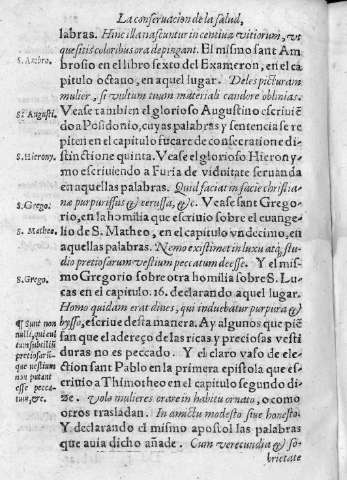 La conseruacion de la salud,
labras. Hinc illa nascuntur incentiua vitiorum, vt
que sitis coloribus ora depingant. El mismo sant Am
S. Ambro.
brosio en el libro sexto del Exameron, en el ca
pitulo octauo, en aquel lugar. Deles picturam
mulier, si vultum tuum materiali candore oblinias.
S. Augusti.
Vease tambien el glorioso Augustino escriuiē
do a Posidonio, cuyas palabras y sentencia se re
piten en el capitulo fucare de consecratione di
S. Hierony.
stinctione quinta. Vease el glorioso Hierony
mo escriuiendo a Furia de viduitate seruanda
en aquellas palabras. Quid faciat in facie christia-
S. Grego.
no purpurissus & cerussa, &c. Vease sant Grego
rio, en la homilia que escriuio sobre el euange-
S. Matheo.
lio de S. Matheo, en el capitulo vndecimo, en
aquellas palabras. Nemo existimet in luxu atq; stu-
dio pretiosarum vestium peccatum deesse. Y el mis-
S. Grego.
mo Gregorio sobre otra homilia sobre S. Lu
cas en el capitulo. 16. declarando aquel lugar.
Homo quidam erat diues, qui induebatur purpura &
¶ Sunt non nulli, qui cul tum subtiliũ pretiosarũ- que uestium non putant esse pecca- tum, &c.
bysso, escriue desta manera. Ay algunos que piē
san que el adereço de las ricas y preciosas vesti
duras no es peccado. Y el claro vaso de ele-
ction sant Pablo en la primera epistola que es-
criuio a Thimotheo en el capitulo segundo di-
ze. volo mulieres orare in habitu ornato, o como
otros trasladan. In amictu modesto siue honesto
Y declarando el mismo apostol las palabras
que auia dicho añade. Cum verecundia & so-
brietate